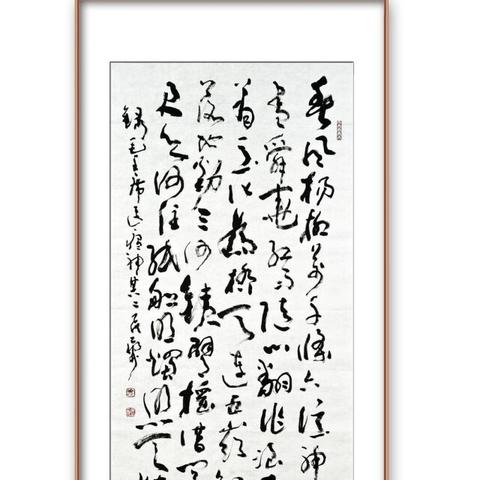 春风杨柳万千条六亿神
尽舜尧红雨随心翻作浪
着意化为桥天连五岭银
落地动三河铁臂摇借问
君欲何往纸船明烛照天烧
录毛主席送瘟神其二